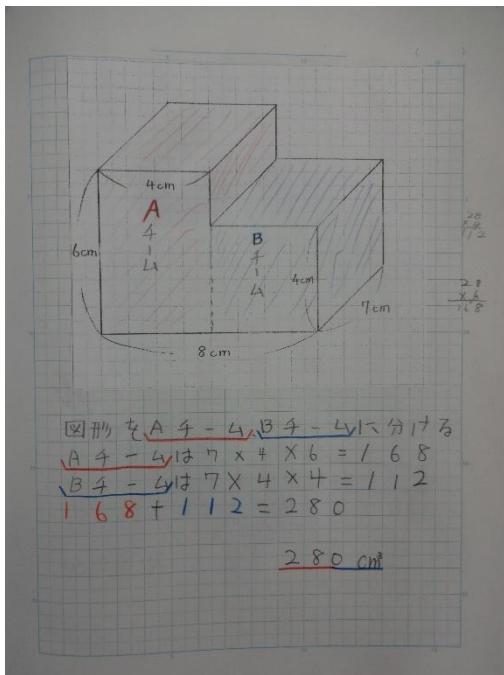 4cm
A
チーム
6cm
B
チーム
4cm
7cm
8cm
28
×6
168
図形をAチーム、Bチームに分ける
Aチームは7×4×6=168
Bチームは7×4×4=112
168+112=280
280cm³